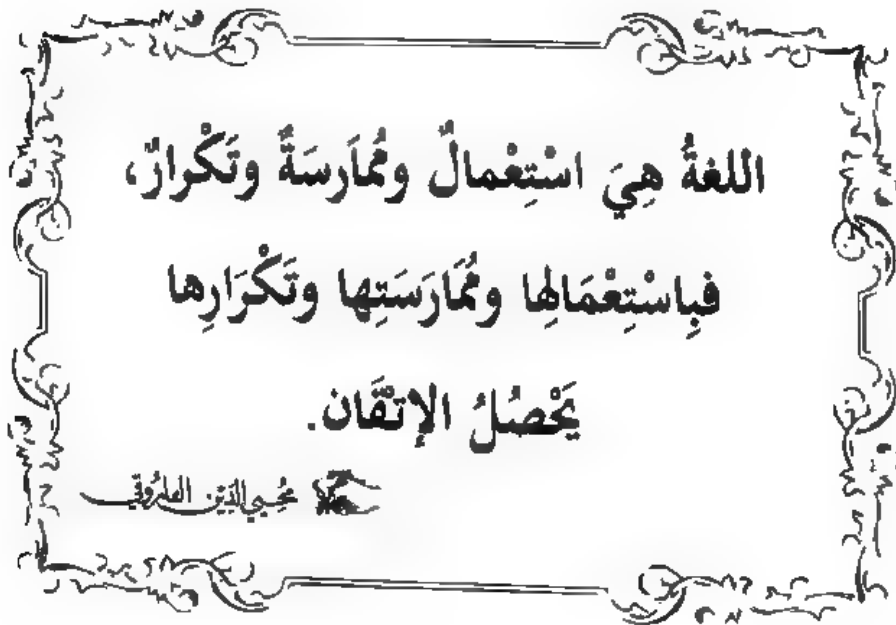 اللغةُ هِيَ اسْتِعْمالٌ ومُمَاَرسَةٌ وتَكْرارٌ،
فبِاسْتِعْمَالِها ومُمَارَسَتِها وتَكْرَارِها
يَحْصُلُ الإتْقَان.
محيي الدين الفاروقي